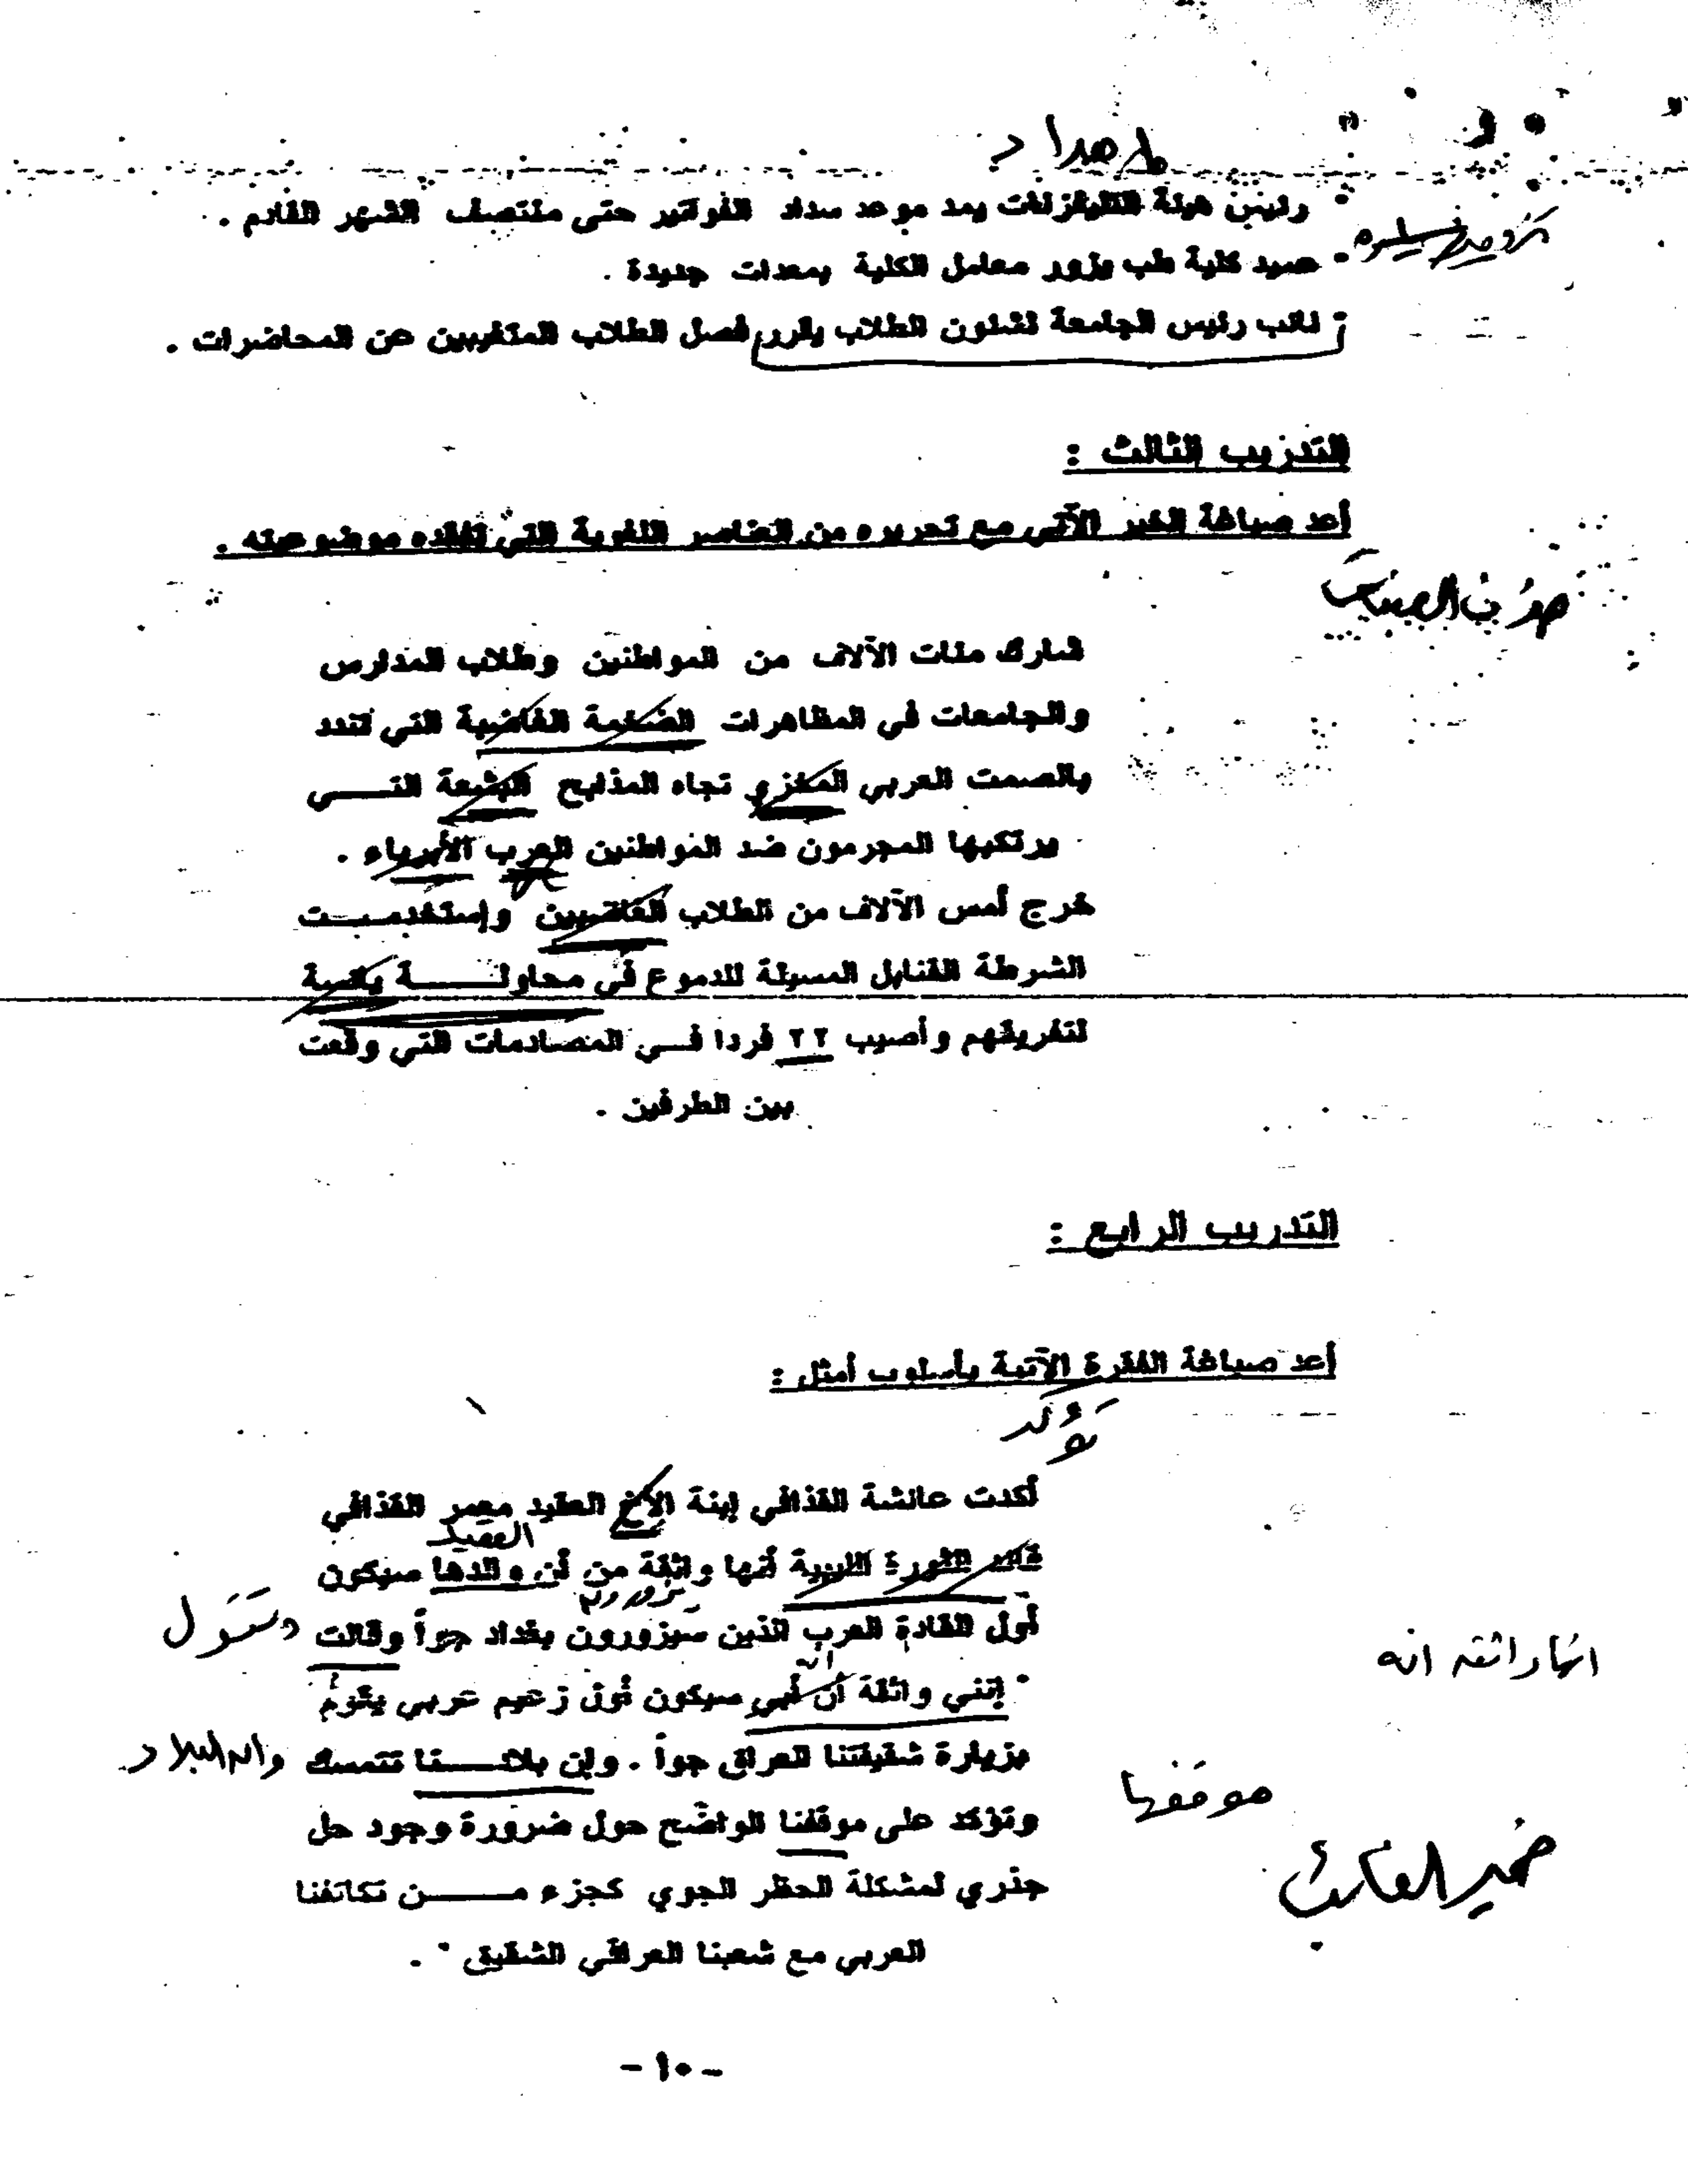 - رئيس هيئة التليفزنات يمد موعد سداد الفواتير حتى منتصف الشهر القادم .
- عميد كلية طب يزور معامل الكلية بمعدات جديدة .
- نائب رئيس الجامعة لشئون الطلاب يقرر فصل الطلاب المتغيبين عن المحاضرات .
التدريب الثالث :
أعد صياغة الخبر الآتي مع تحريره من العناصر اللغوية التي تفقده موضوعيته .
شارك مئات الآلاف من المواطنين وطلاب المدارس
والجامعات في المظاهرات الضخمة الغاضبة التي تندد
بالصمت العربي المخزي تجاه المذابح البشعة التــــي
يرتكبها المجرمون ضد المواطنين العرب الأبرياء .
خرج أمس الآلاف من الطلاب الغاضبين وإستخدمــت
الشرطة القنابل المسيلة للدموع في محاولــــــة يائسة
لتفريقهم وأصيب ٢٢ فردا فــي المصادمات التي وقعت
بين الطرفين .
التدريب الرابع :
أعد صياغة الفقرة الآتية بأسلوب أمثل :
تؤكد
أكدت عائشة القذافي إبنة الأخ العقيد معمر القذافي
العقيد
قائد الثورة الليبية أنها واثقة من أن والدها سيكون
يزورون
أول القادة العرب الذين سيزورون بغداد جواً وقالت وتقول
انها واثقه انه
" إنني واثقة أن أبي سيكون أول زعيم عربي يقوم
بزيارة شقيقتنا العراق جواً . وإن بلادـــنا تتمسك وان البلاد
موقفها
وتؤكد على موقفنا الواضح حول ضرورة وجود حل
ضمير الغائب
جذري لمشكلة الحظر الجوي كجزء مـــــن تكاتفنا
العربي مع شعبنا العراقي الشقيق " .
- ١٠ -